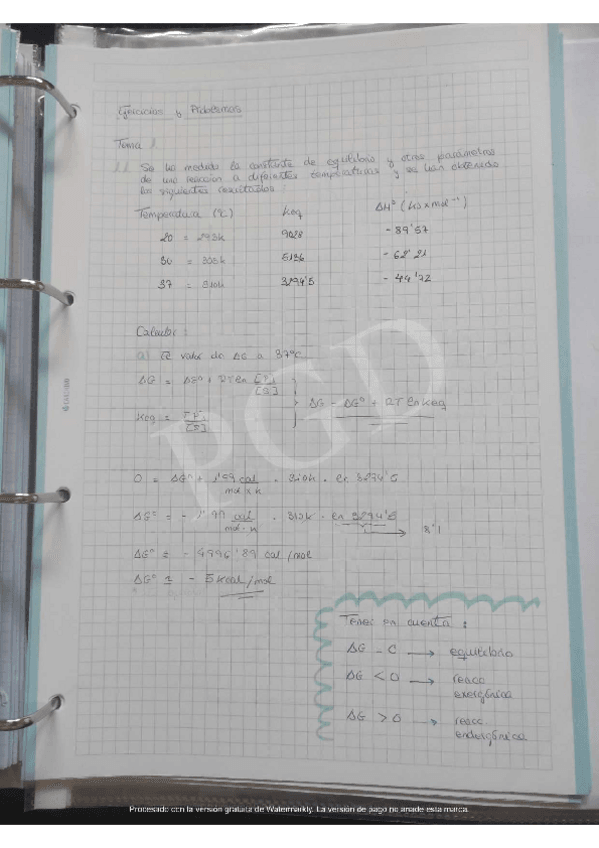 Ejercicios y Problemas
Tema 1
1.1 Se ha medido la constante de equilibrio y otros parámetros
de una reacción a diferentes temperaturas y se han obtenido
los siguientes resultados:
Temperatura (ºC) Keq ΔHº (KJ×mol⁻¹)
20 = 293k 9028 -89'57
30 = 303k 5136 -62'21
37 = 310k 3294'5 -44'72
Calcular:
a) El valor de ΔG a 37ºC
ΔG = ΔGº + RT ln [P] / [S]
Keq = [P] / [S]
ΔG = ΔGº + RT ln Keq
0 = ΔGº + 1'99 cal / mol × k · 310k · ln 3274'5
ΔGº = - 1'99 cal / mol · k · 310k · ln 3294'5
8'1
ΔGº = - 4996'89 cal/mol
ΔGº = - 5 kcal/mol
Tener en cuenta:
ΔG = 0 → equilibrio
ΔG < 0 → reacc
exergónica
ΔG > 0 → reacc
endergónica
PGD
Procesado con la versión gratuita de Watermarkly. La versión de pago no añade esta marca.